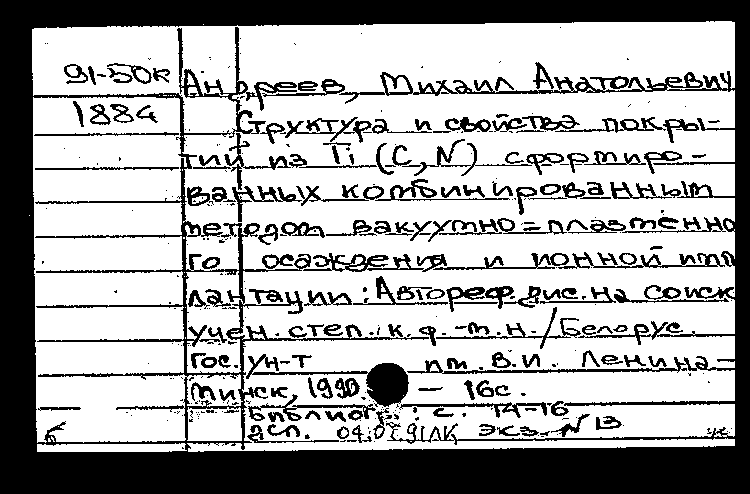 91-50к Андреев, Михаил Анатольевич
1884 Структура и свойства покры-
тий из Ti (C, N) сформиро-
ванных комбинированным
методом вакуумно=плазменно
го осаждения и ионной имп
лантации: Автореф. дис. на соиск
учен. степ. к. ф.-м. н. / Белорус.
Гос. ун-т им. В. И. Ленина -
Минск, 1990. - 16с.
Библиогр.: с. 14-16
дсп. экз. N 13